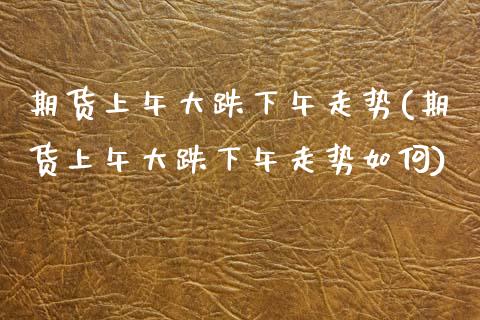 期货上午大跌下午走势(期
货上午大跌下午走势如何)